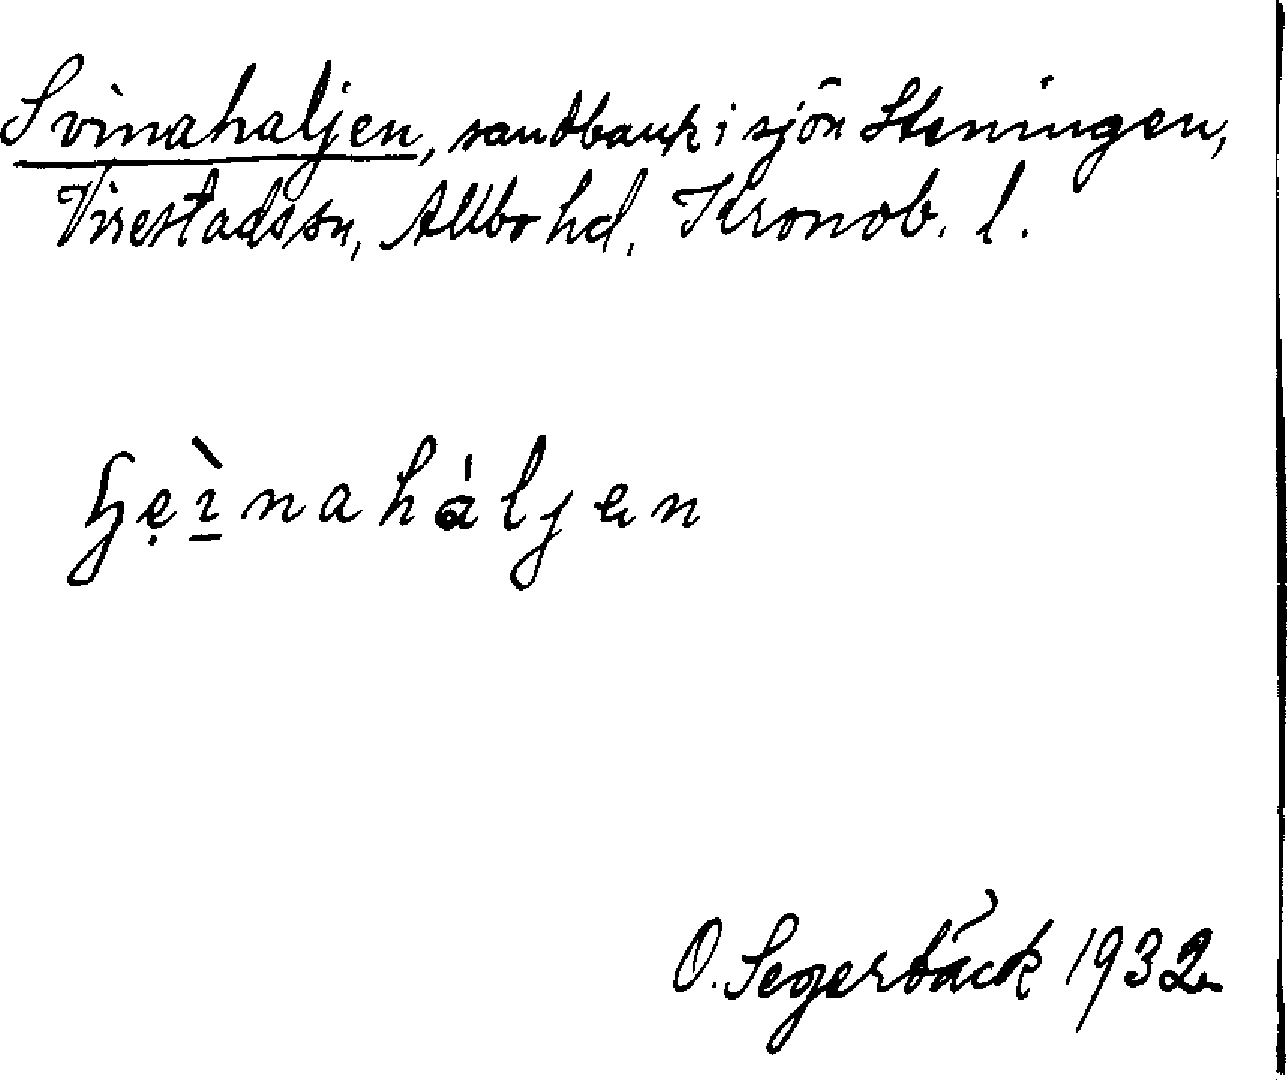 Svinahaljen, sandbank i sjön Steningen,
Virestads sn, Allbo hd, Kronob. l.
O. Segerbäck 1932